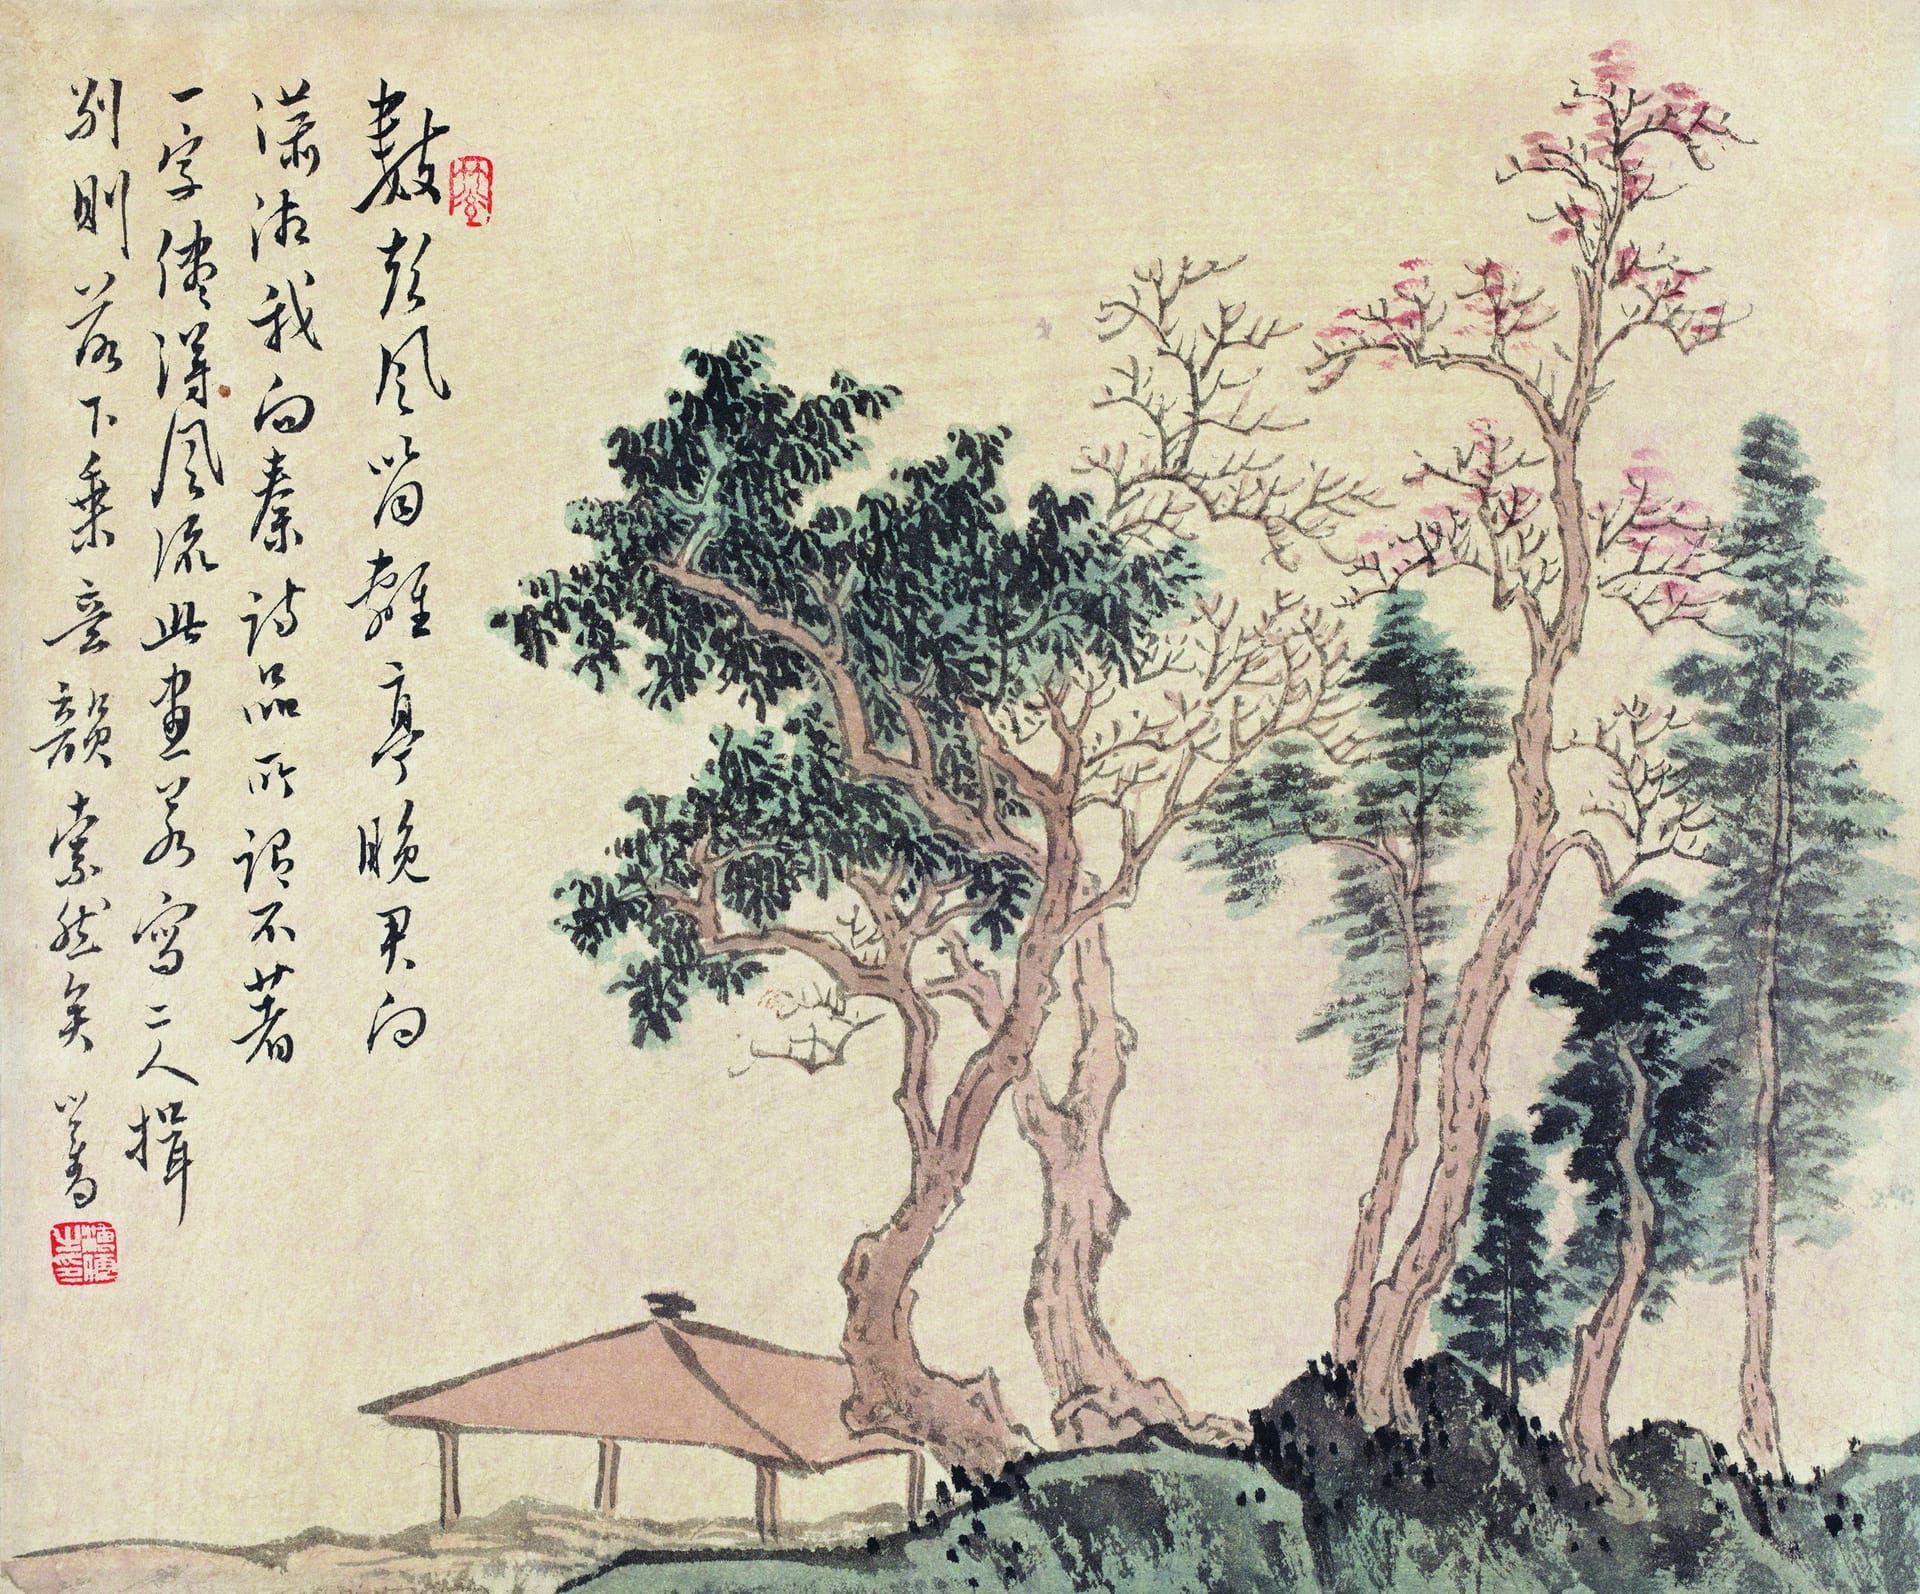 數聲風笛離亭晚君向
瀟湘我向秦詩品所謂不著
一字儘得風流此畫若寫二人揖
別則落下乘意韻索然矣